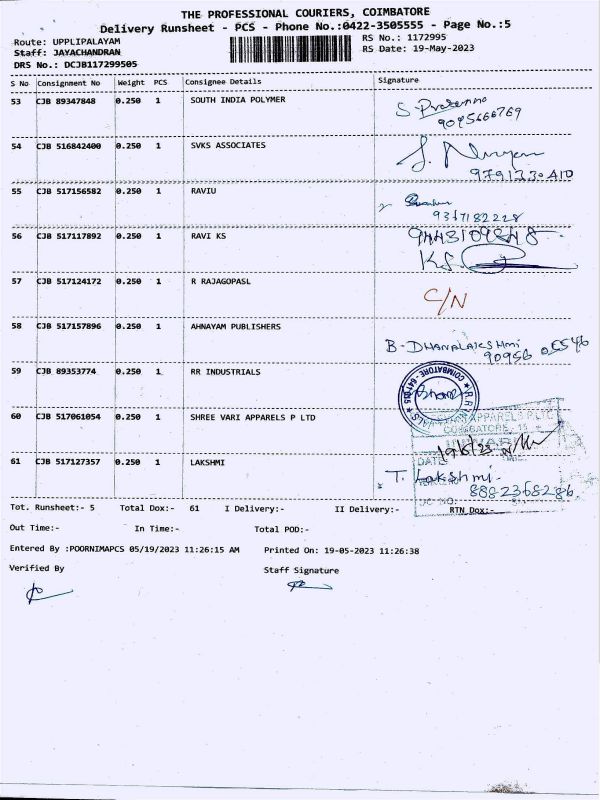 THE PROFESSIONAL COURIERS, COIMBATORE
Delivery Runsheet - PCS - Phone No.:0422-3505555 - Page No.:5
Route: UPPLIPALAYAM
RS No.: 1172995
Staff: JAYACHANDRAN
RS Date: 19-May-2023
DRS No.: DCJB117299505
S No Consignment No Weight PCS Consignee Details Signature
53 CJB 89347848 0.250 1 SOUTH INDIA POLYMER
S. Prasanna
9095666769
54 CJB 516842400 0.250 1 SVKS ASSOCIATES
55 CJB 517156582 0.250 1 RAVIU
9367182228
56 CJB 517117892 0.250 1 RAVI KS
KS.
57 CJB 517124172 0.250 1 R RAJAGOPASL
C/N
58 CJB 517157896 0.250 1 AHNAYAM PUBLISHERS
B-DHANALAKSHMI
90956 06546
59 CJB 89353774 0.250 1 RR INDUSTRIALS
COIMBATORE - 641 015
60 CJB 517061054 0.250 1 SHREE VARI APPARELS P LTD
APPARELS P LTD
COIMBATORE - 15
19/5/23
61 CJB 517127357 0.250 1 LAKSHMI
DATE
T. Lakshmi.
8882368286.
Tot. Runsheet:- 5 Total Dox:- 61 I Delivery:- II Delivery:- RTN Dox:-
Out Time:- In Time:- Total POD:-
Entered By :POORNIMAPCS 05/19/2023 11:26:15 AM Printed On: 19-05-2023 11:26:38
Verified By Staff Signature